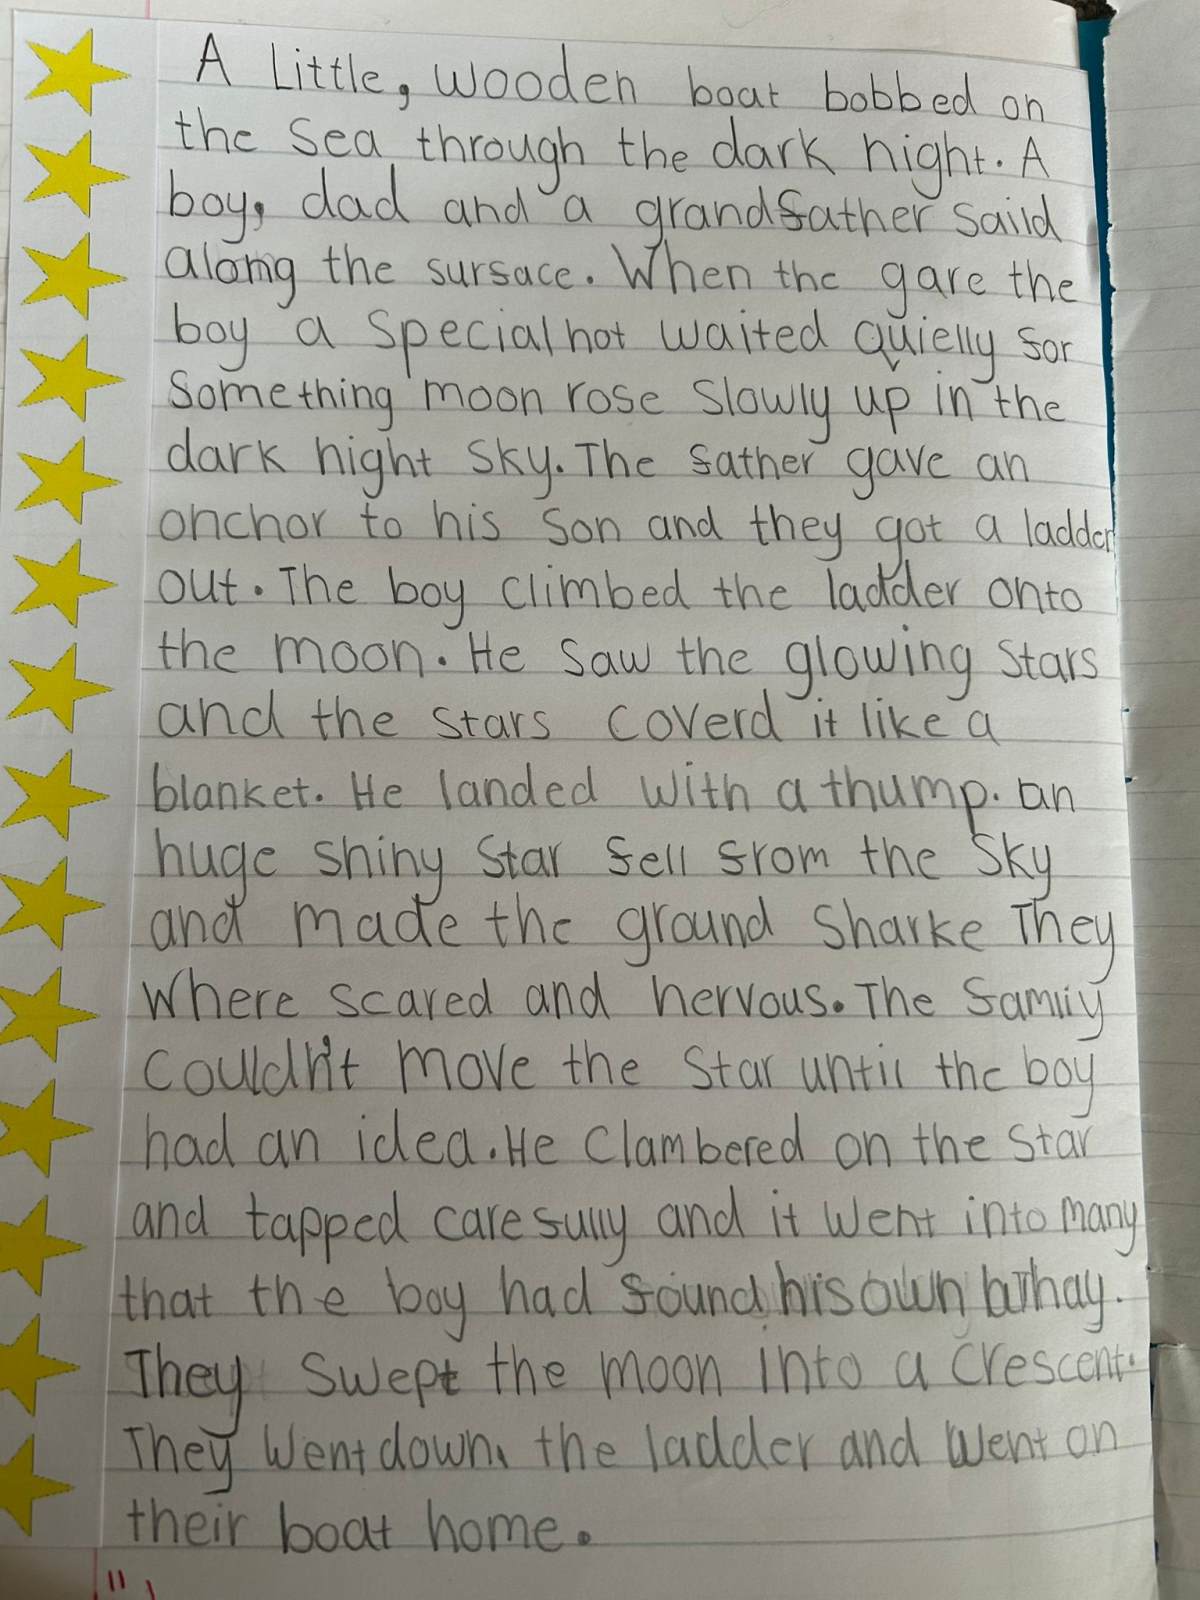 A Little, wooden boat bobbed on
the sea through the dark night. A
boy, dad and a grandfather saild
along the surface. When the gare the
boy a special hot waited quielly for
something moon rose slowly up in the
dark night sky. The father gave an
onchor to his son and they got a ladder
out. The boy climbed the ladder onto
the moon. He saw the glowing stars
and the stars coverd it like a
blanket. He landed with a thump. an
huge shiny star fell from the sky
and made the ground sharke They
where scared and nervous. The famliy
couldn't move the star until the boy
had an idea. He clambered on the star
and tapped carefully and it went into many
that the boy had found his own
They swept the moon into a crescent.
They went down the ladder and went on
their boat home.